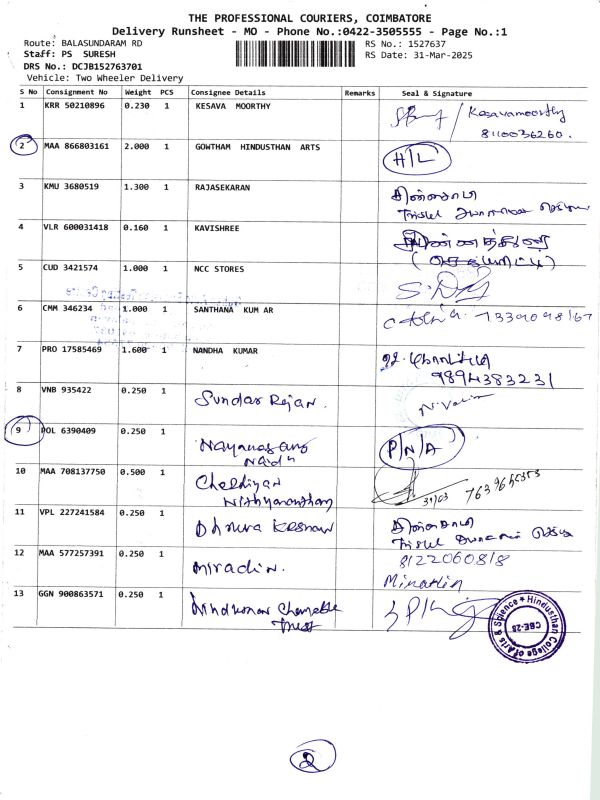 THE PROFESSIONAL COURIERS, COIMBATORE
Delivery Runsheet - MO - Phone No.:0422-3505555 - Page No.:1
Route: BALASUNDARAM RD RS No.: 1527637
Staff: PS SURESH RS Date: 31-Mar-2025
DRS No.: DCJB152763701
Vehicle: Two Wheeler Delivery
S No Consignment No Weight PCS Consignee Details Remarks Seal & Signature
1 KRR 50210896 0.230 1 KESAVA MOORTHY Kesavamoorthy
8110036260.
2 MAA 866803161 2.000 1 GOWTHAM HINDUSTHAN ARTS H/L
3 KMU 3680519 1.300 1 RAJASEKARAN சின்னசாமி
4 VLR 600031418 0.160 1 KAVISHREE
5 CUD 3421574 1.000 1 NCC STORES
6 CMM 346234 1.000 1 SANTHANA KUM AR
7 PRO 17585469 1.600 1 NANDHA KUMAR
9894383231
8 VNB 935422 0.250 1 Sundar Rajan.
9 POL 6390409 0.250 1 Nayanasang Naidu P/N/A
10 MAA 708137750 0.500 1 Cheldiyan
Nithyanantham 31/03
11 VPL 227241584 0.250 1 சின்னசாமி
12 MAA 577257391 0.250 1 Miradin. 8122060818
13 GGN 900863571 0.250 1
Trust
Hindusthan College of Arts & Science ★
CBE-28
2